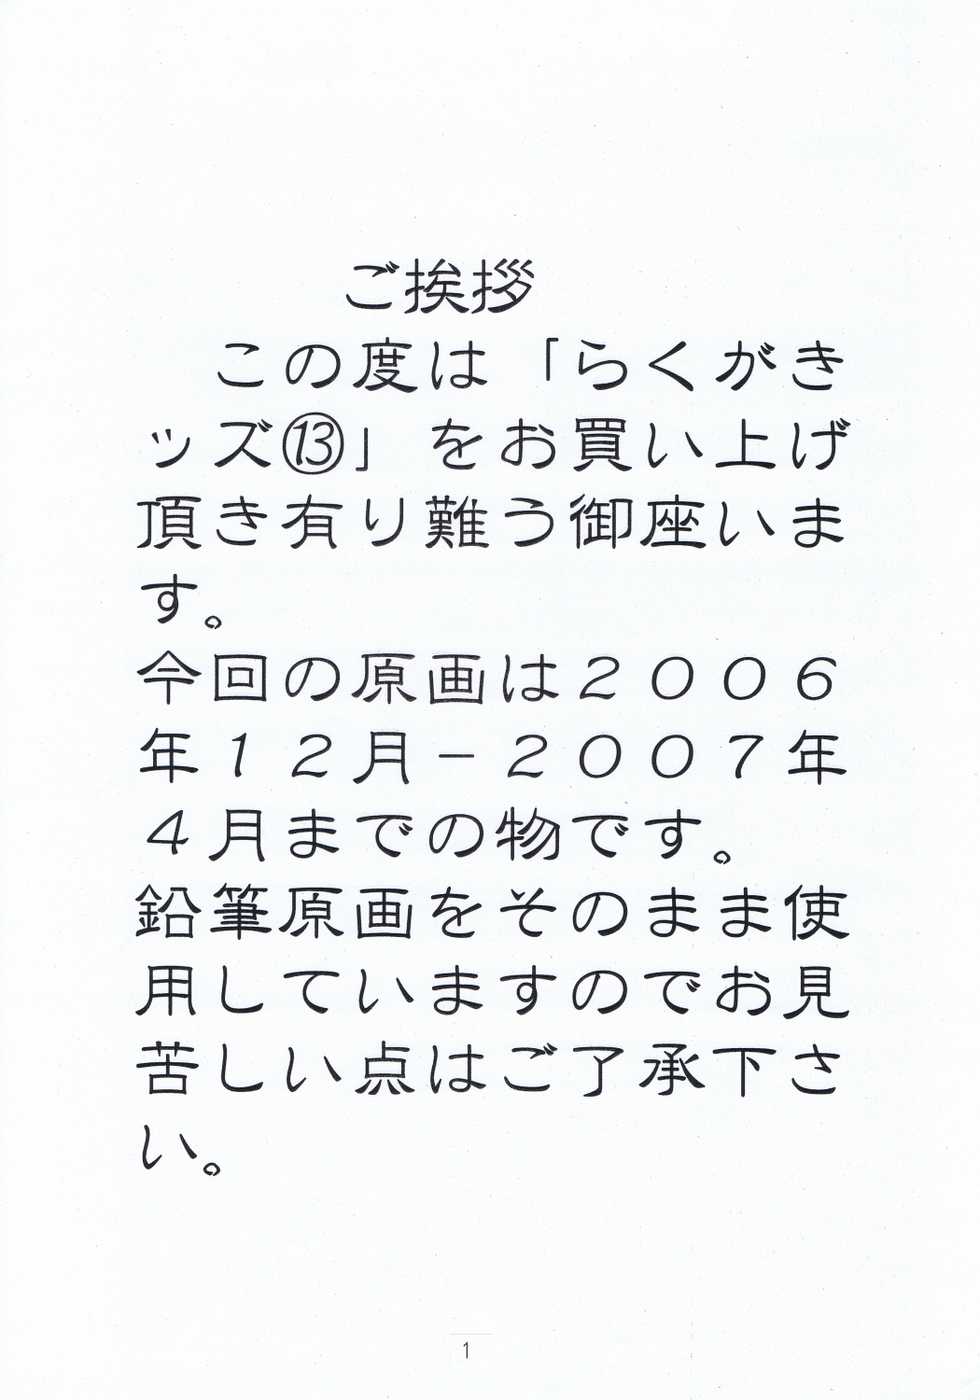 ご挨拶
この度は「らくがき
ッズ⑬」をお買い上げ
頂き有り難う御座いま
す。
今回の原画は２００６
年１２月－２００７年
４月までの物です。
鉛筆原画をそのまま使
用していますのでお見
苦しい点はご了承下さ
い。
1